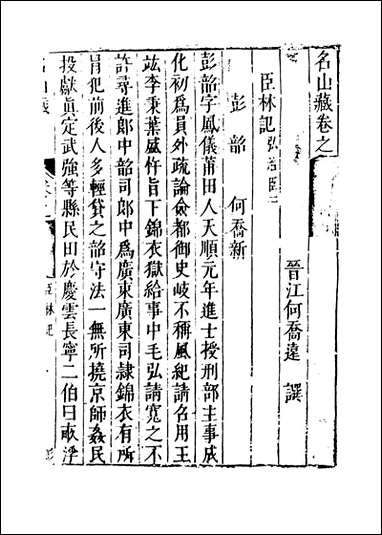 名山藏卷之
晉江何喬遠 譔
臣林記 弘治臣三
彭韶 何喬新
彭韶字鳳儀莆田人天順元年進士授刑部主事成
化初爲員外疏論僉都御史岐不稱風紀請召用王
竑李秉葉盛忤旨下錦衣獄給事中毛弘請寬之不
許尋進郎中韶司郎中爲廣東廣東司隸錦衣有所
肎犯前後人多輕貸之韶守法一無所撓京師姦民
投獻眞定武強等縣民田於慶雲長寧二伯曰畝浮
臣林記